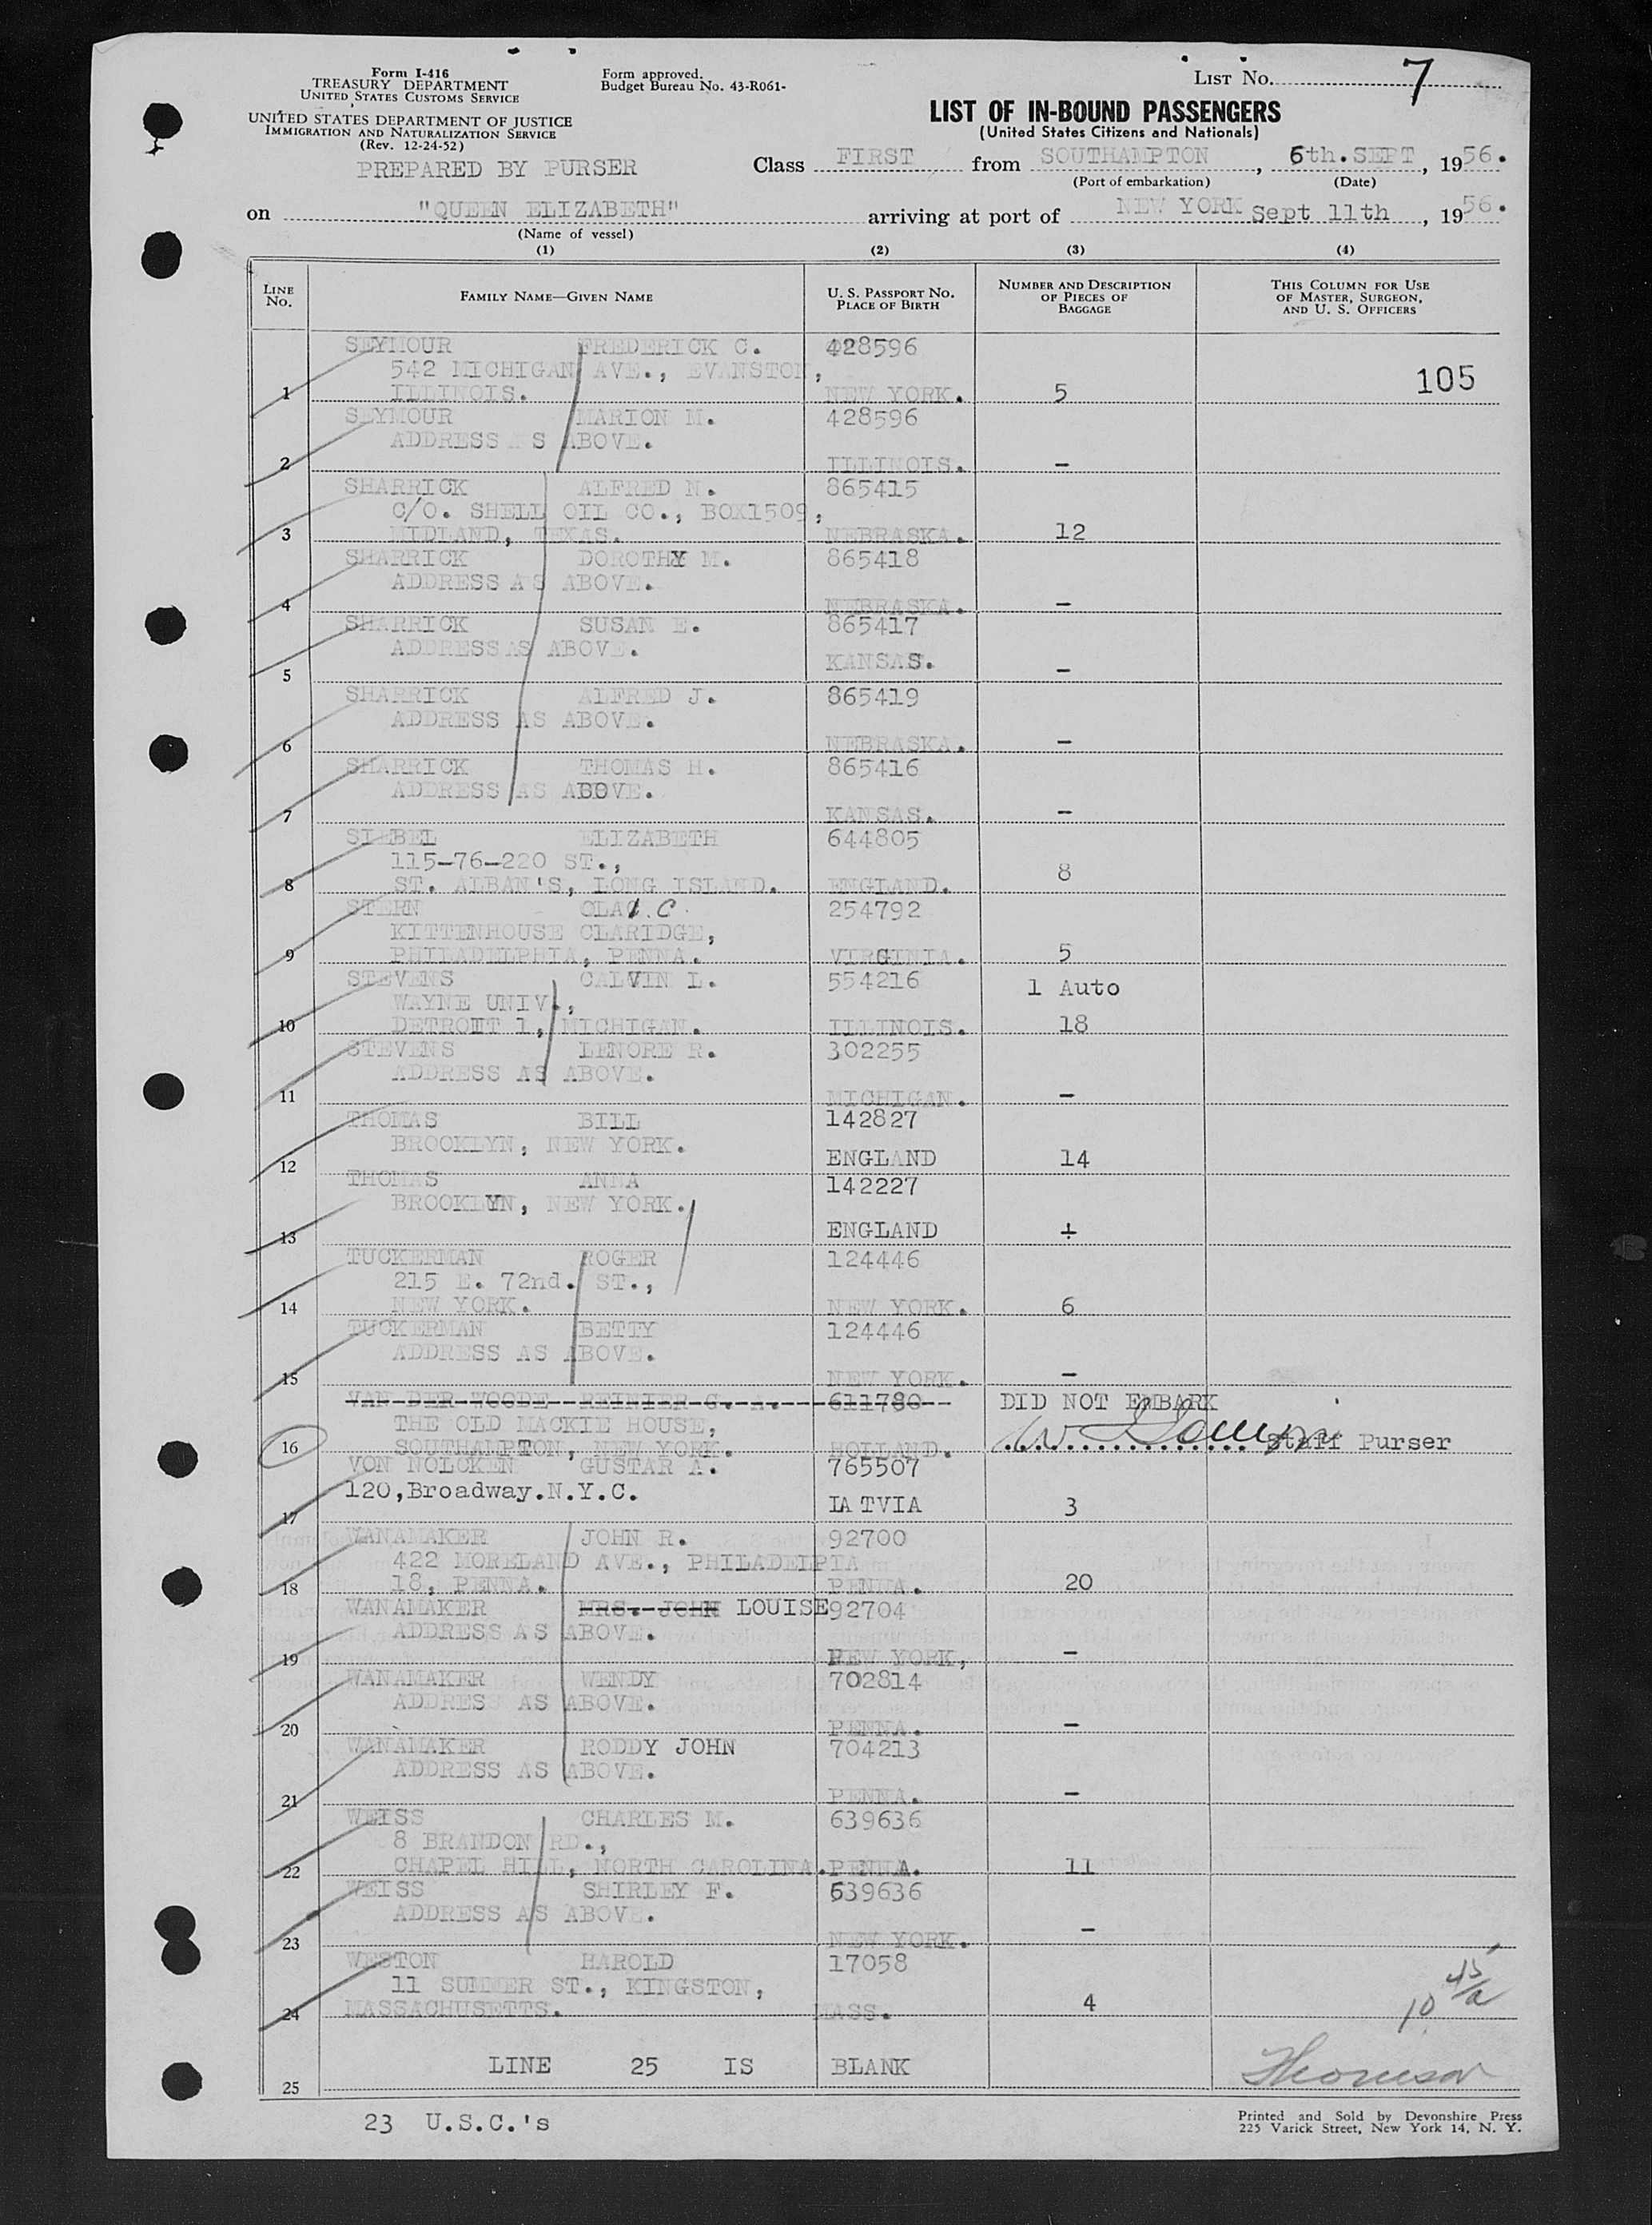 Form I-416
TREASURY DEPARTMENT
UNITED STATES CUSTOMS SERVICE
UNITED STATES DEPARTMENT OF JUSTICE
IMMIGRATION AND NATURALIZATION SERVICE
(Rev. 12-24-52)
PREPARED BY PURSER
Form approved.
Budget Bureau No. 43-R061-
LIST NO. 7
LIST OF IN-BOUND PASSENGERS
(United States Citizens and Nationals)
Class FIRST from SOUTHAMPTON, 6th.SEPT, 1956.
(Port of embarkation) (Date)
on "QUEEN ELIZABETH" arriving at port of NEW YORK Sept 11th, 1956.
(Name of vessel)
(1) (2) (3) (4)
LINE NO. FAMILY NAME—GIVEN NAME U. S. PASSPORT NO. PLACE OF BIRTH NUMBER AND DESCRIPTION OF PIECES OF BAGGAGE THIS COLUMN FOR USE OF MASTER, SURGEON, AND U. S. OFFICERS
SEYMOUR FREDERICK C. 428596
542 MICHIGAN AVE., EVANSTON, 105
1 ILLINOIS. NEW YORK. 5
SEYMOUR MARION M. 428596
ADDRESS AS ABOVE.
2 ILLINOIS. -
SHARRICK ALFRED N. 865415
C/O. SHELL OIL CO., BOX1509,
3 MIDLAND, TEXAS. NEBRASKA. 12
SHARRICK DOROTHY M. 865418
ADDRESS AS ABOVE.
4 NEBRASKA. -
SHARRICK SUSAN E. 865417
ADDRESS AS ABOVE.
5 KANSAS. -
SHARRICK ALFRED J. 865419
ADDRESS AS ABOVE.
6 NEBRASKA. -
SHARRICK THOMAS H. 865416
ADDRESS AS ABOVE.
7 KANSAS. -
SIEBEL ELIZABETH 644805
115-76-220 ST.,
8 ST. ALBAN'S, LONG ISLAND. ENGLAND. 8
STERN 254792
KITTENHOUSE CLARIDGE,
9 PHILADELPHIA, PENNA. VIRGINIA. 5
STEVENS CALVIN L. 554216 1 Auto
WAYNE UNIV.,
10 DETROIT 1, MICHIGAN. ILLINOIS. 18
STEVENS LENORE R. 302255
ADDRESS AS ABOVE.
11 MICHIGAN. -
THOMAS BILL 142827
BROOKLYN, NEW YORK.
12 ENGLAND 14
THOMAS ANNA 142227
BROOKLYN, NEW YORK.
13 ENGLAND -
TUCKERMAN ROGER 124446
215 E. 72nd. ST.,
14 NEW YORK. NEW YORK. 6
TUCKERMAN BETTY 124446
ADDRESS AS ABOVE.
15 NEW YORK. -
VAN DER WOODE REINIER G. A. 611780 DID NOT EMBARK
THE OLD MACKIE HOUSE,
16 SOUTHAMPTON, NEW YORK. HOLLAND. Staff Purser
VON NOLCKEN GUSTAR A. 765507
120,Broadway.N.Y.C.
17 LATVIA 3
WANAMAKER JOHN R. 92700
422 MORELAND AVE., PHILADELPIA
18 18, PENNA. PENNA. 20
WANAMAKER MRS. JOHN LOUISE 92704
ADDRESS AS ABOVE.
19 NEW YORK, -
WANAMAKER WENDY 702814
ADDRESS AS ABOVE.
20 PENNA. -
WANAMAKER RODDY JOHN 704213
ADDRESS AS ABOVE.
21 PENNA. -
WEISS CHARLES M. 639636
8 BRANDON RD.,
22 CHAPEL HILL, NORTH CAROLINA. PENNA. 11
WEISS SHIRLEY F. 639636
ADDRESS AS ABOVE.
23 NEW YORK. -
WESTON HAROLD 17058
11 SUMMER ST., KINGSTON,
24 MASSACHUSETTS. MASS. 4
LINE 25 IS BLANK
25
23 U.S.C.'s
Printed and Sold by Devonshire Press
225 Varick Street, New York 14, N. Y.